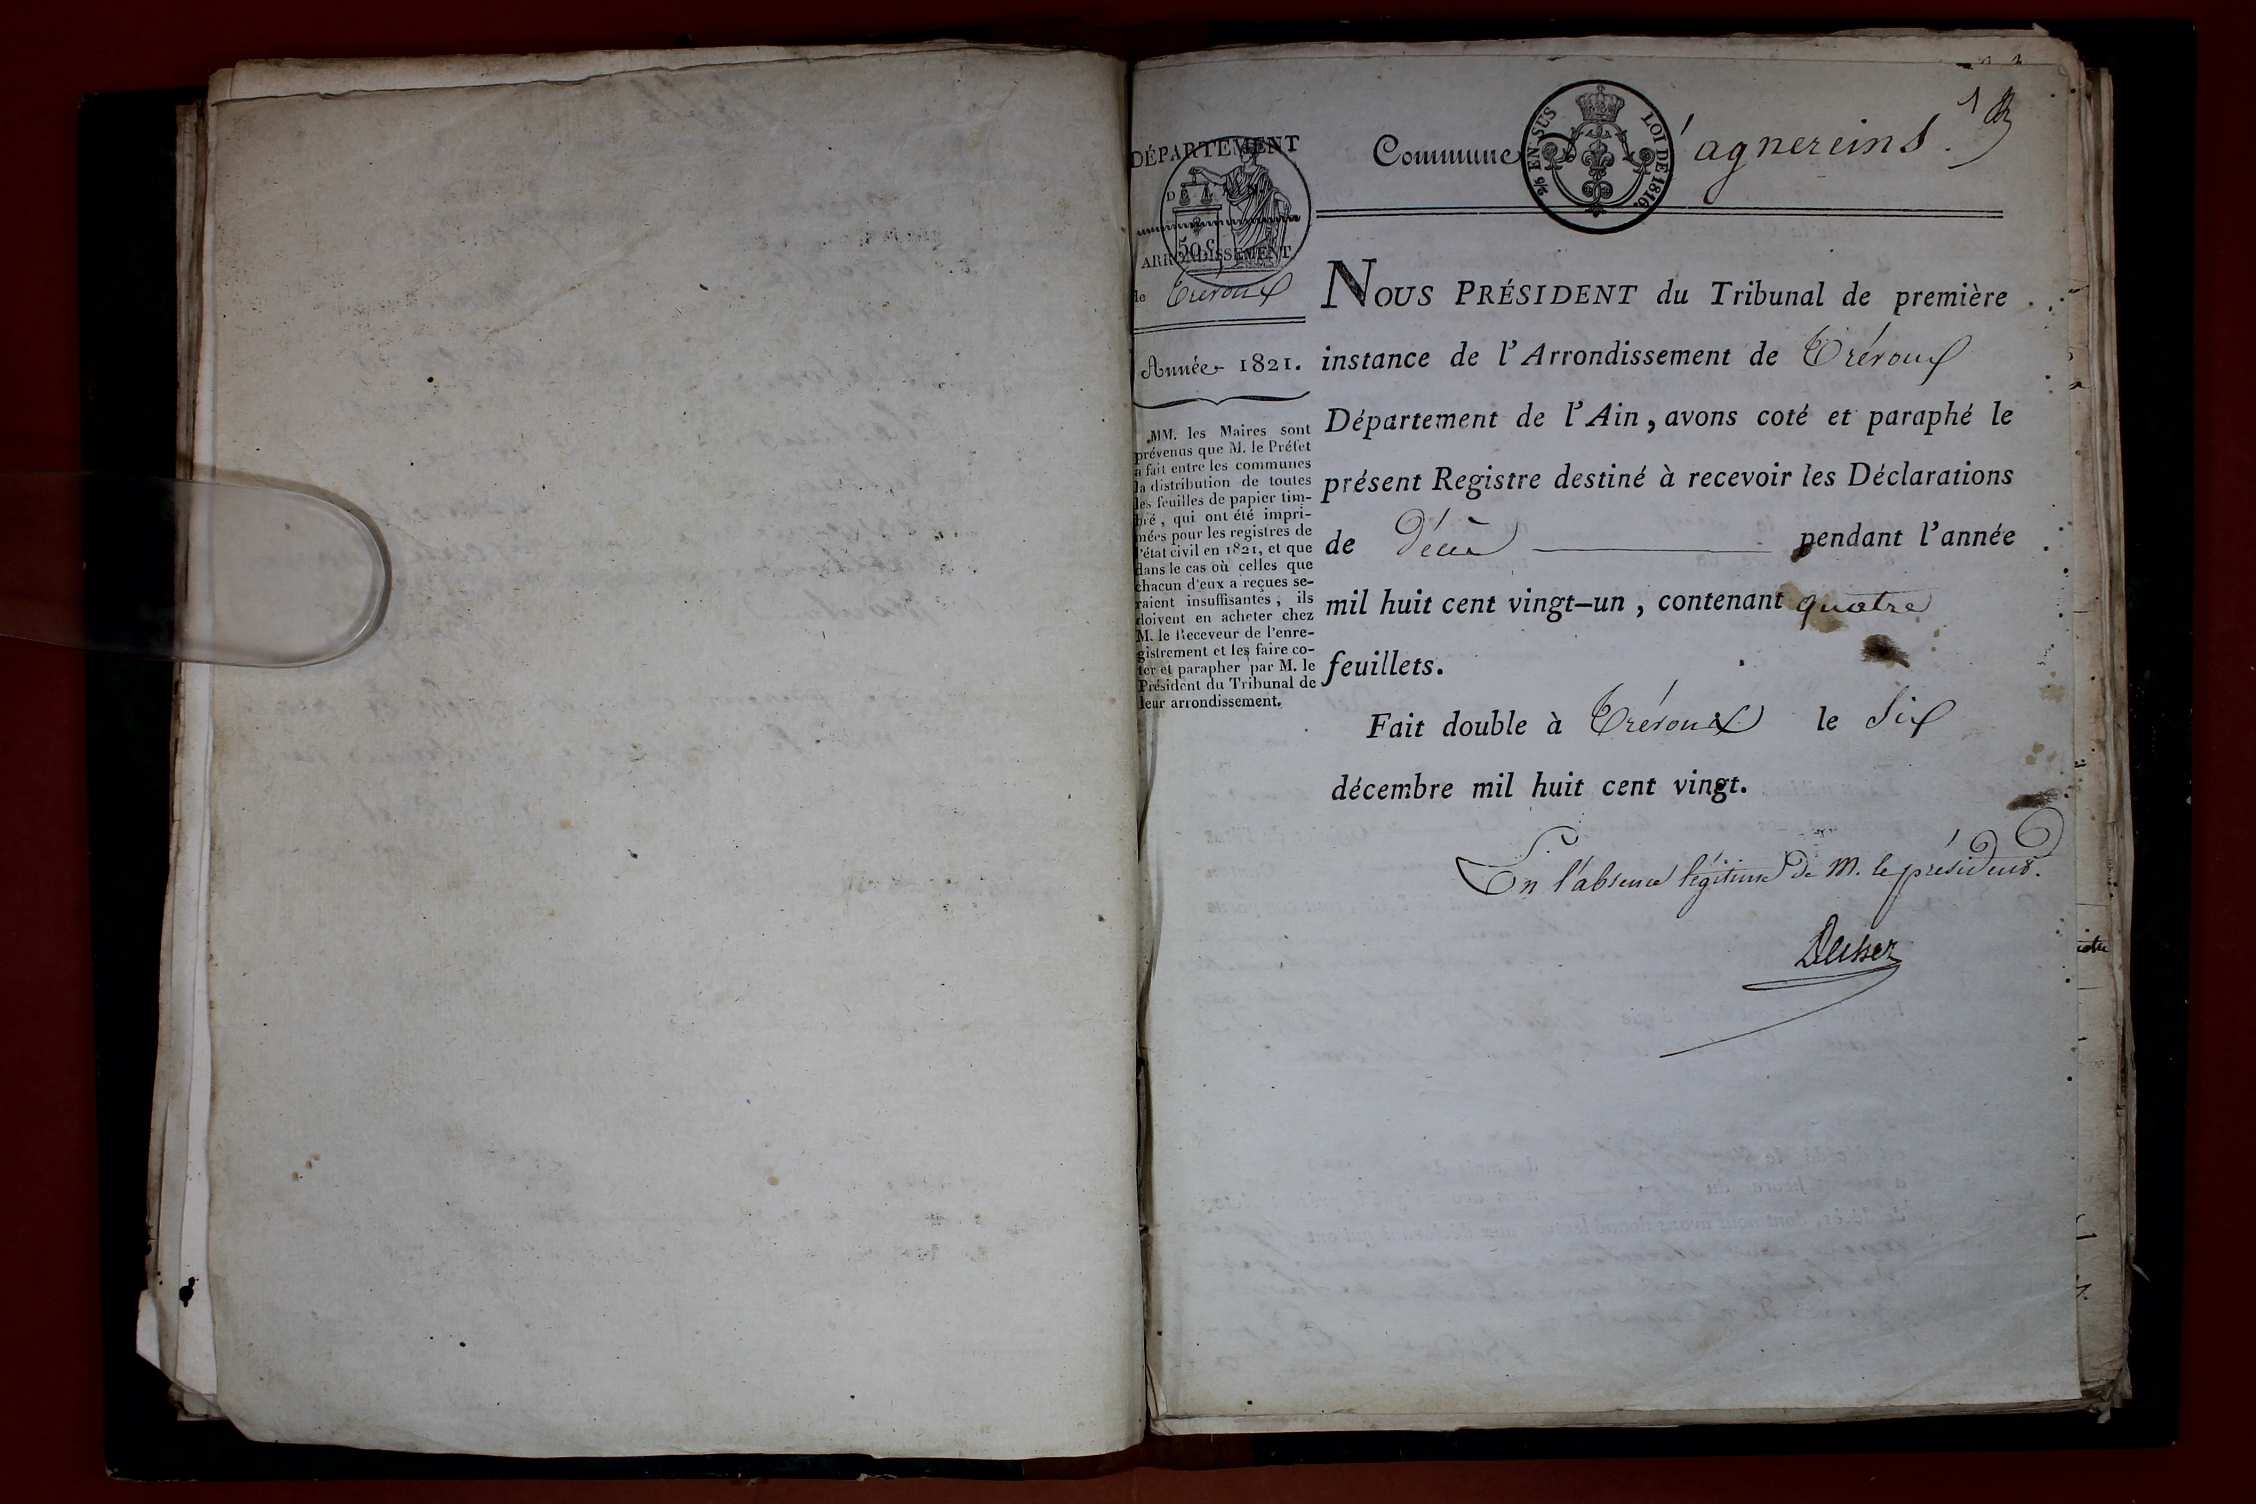 1
DÉPARTEMENT
DE L'AIN
50 C.
ARRONDISSEMENT
de Trévoux
Année 1821.
MM. les Maires sont
prévenus que M. le Préfet
a fait entre les communes
la distribution de toutes
les feuilles de papier tim-
bré, qui ont été impri-
mées pour les registres de
l'état civil en 1821, et que
dans le cas où celles que
chacun d'eux a reçues se-
raient insuffisantes, ils
doivent en acheter chez
M. le Receveur de l'enre-
gistrement et les faire co-
ter et parapher par M. le
Président du Tribunal de
leur arrondissement.
Commune d'agnereins.
EN SUS LOI DE 1816.
NOUS PRÉSIDENT du Tribunal de première
instance de l'Arrondissement de Trévoux
Département de l'Ain, avons coté et paraphé le
présent Registre destiné à recevoir les Déclarations
de Décès pendant l'année
mil huit cent vingt-un, contenant quatre
feuillets.
Fait double à Trévoux le Six
décembre mil huit cent vingt.
En l'absence légitime de M. le président.